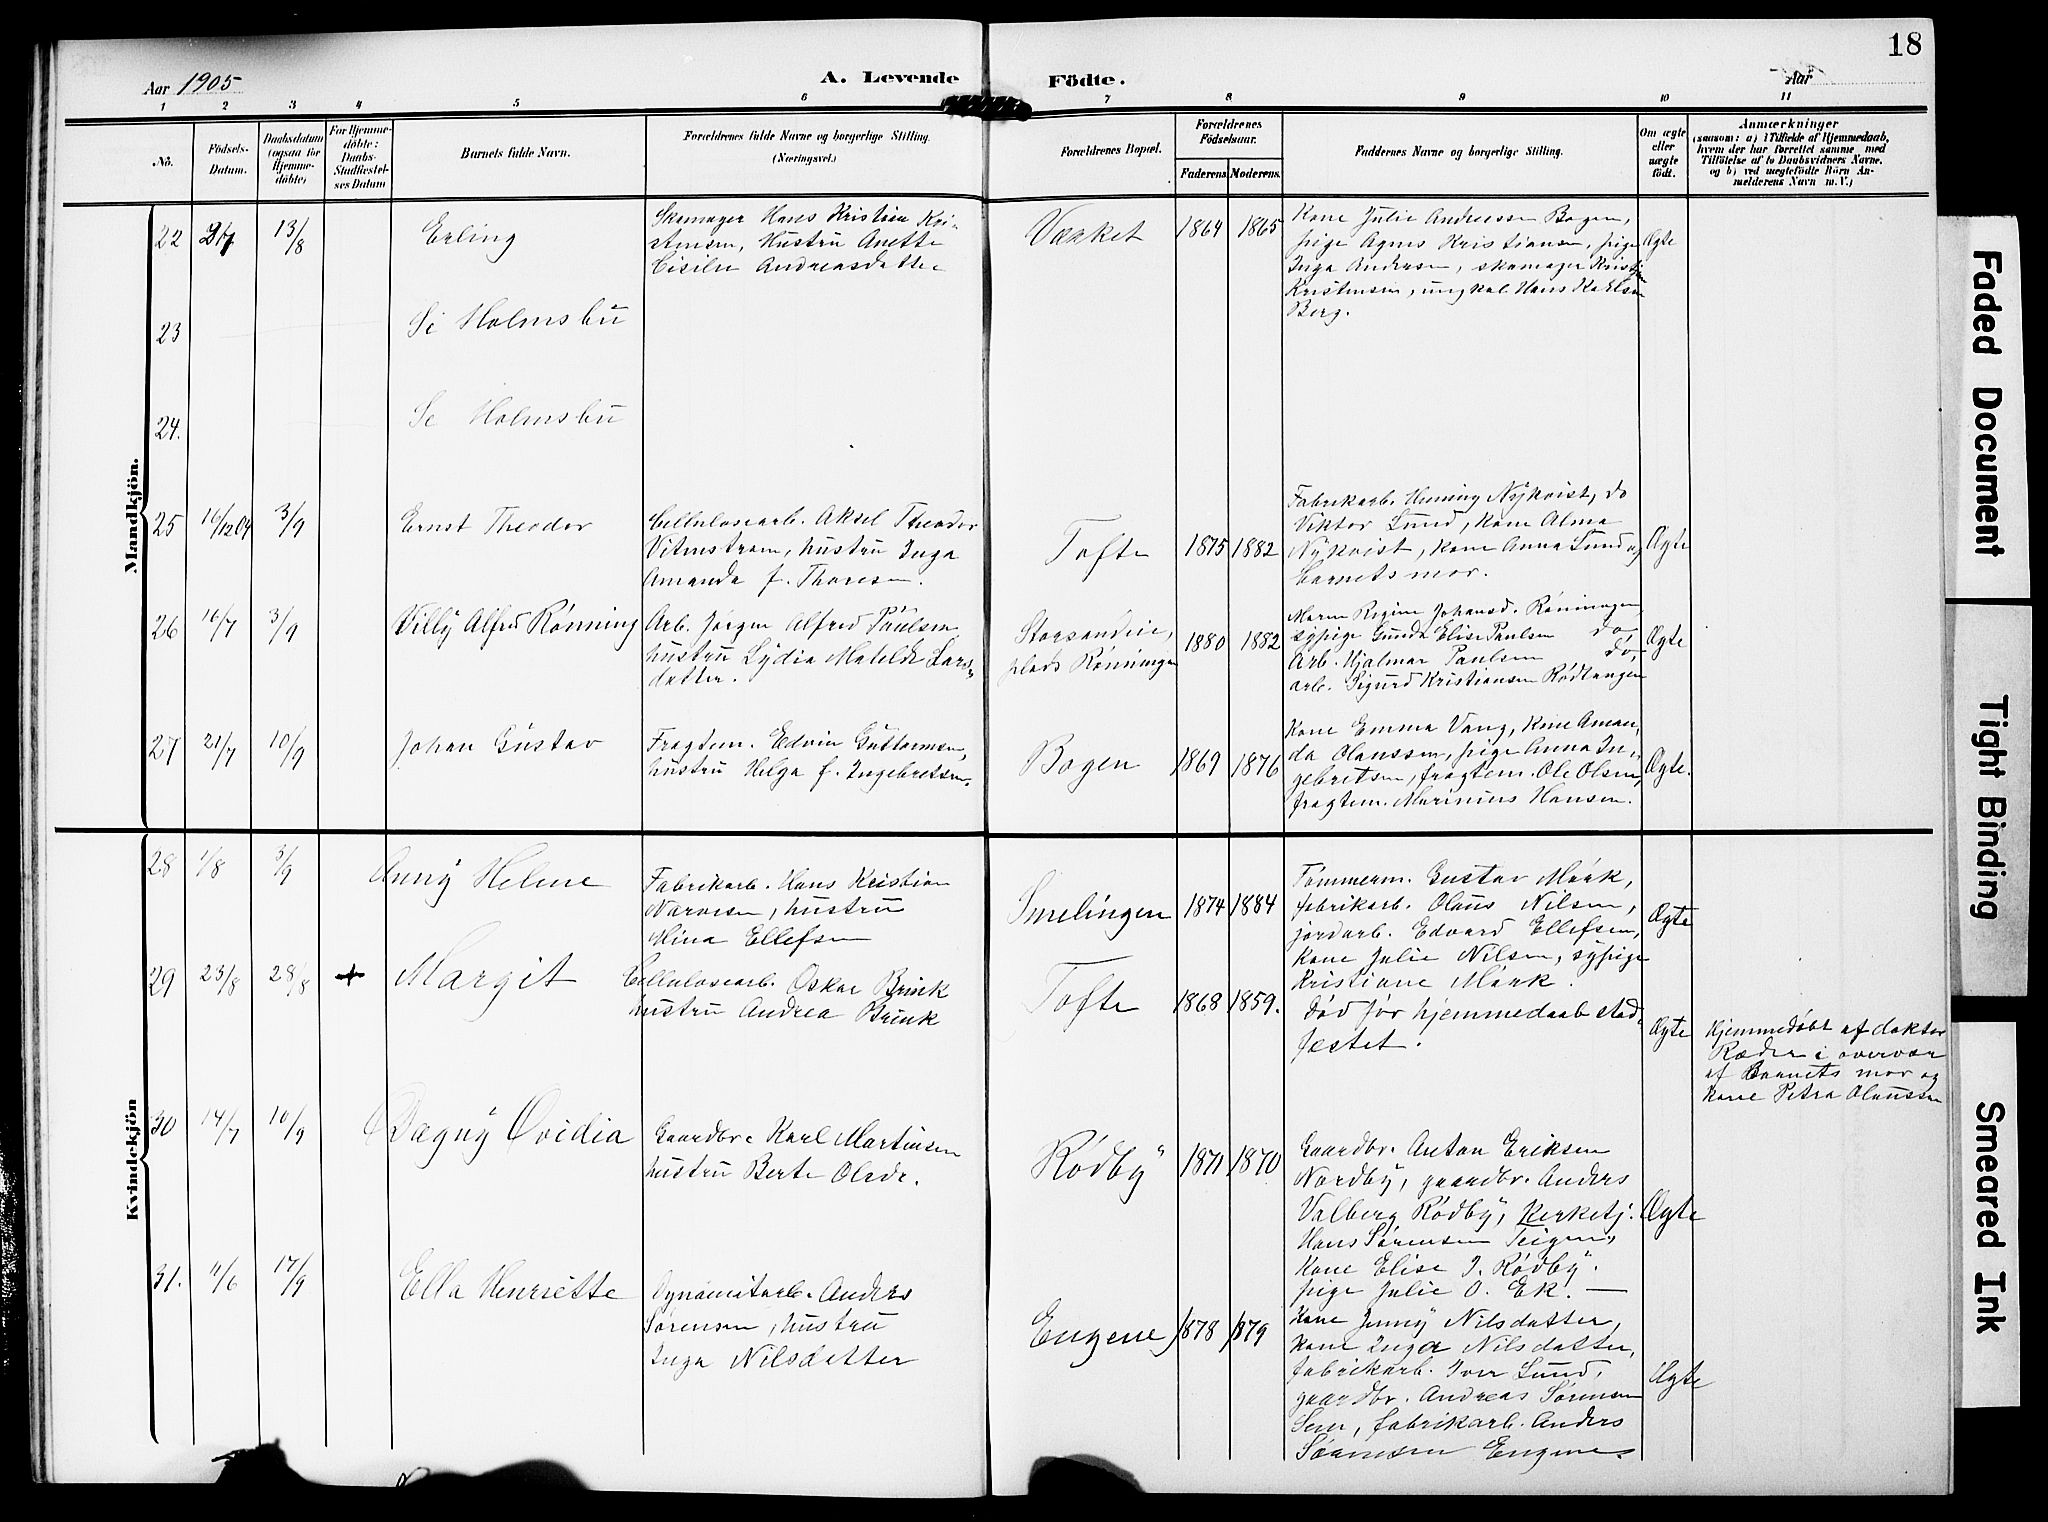 18
Aar 1905
A. Levende
Födte.
Aar
1 2 3 4 5 6 7 8 9 10 11
No.
Födsels-
Datum.
Daabsdatum
(ogsaa for
Hjemme-
döbte)
For Hjemme-
döbte:
Daabs-
Stadfæstel-
ses Datum
Barnets fulde Navn.
Forældrenes fulde Navne og borgerlige Stilling.
(Næringsvei.)
Forældrenes Bopæl.
Forældrenes
Födselsaar.
Faderens
Moderens.
Faddernes Navne og borgerlige Stilling.
Om ægte
eller
uægte
födt.
Anmærkninger
(saasom: a) i Tilfælde af Hjemmedaab,
hvem der har forrettet samme med
Tilföielse af to Daabsvidners Navne,
og b) ved uægtefödte Börn An-
melderens Navn m. V.)
Mandkjön.
22
13/8
Erling
Skomager Hans Kristian Kri-
stensen, Hustru Anette
Cisilie Andreasdatter
Vaaket
1864
1865
Kone Julie Andreassen Bogen,
pige Agnes Kristiansen, pige
Inga Andersen, skomager Kristian
Kristensen, ungkal Hans Karlsen
Berg.
Ægte
23
Se Holmsbu
24.
Se Holmsbu
25
16/12 04
3/9
Ernst Theodor
Cellulosearb. Aksel Theodor
Vitmstrøm, hustru Inga
Amanda f. Thoresen.
Tofte
1875
1882
Fabrikarb. Henning Nykvist, do
Viktor Lund, kone Alma
Nykvist, kone Anna Lund og
barnets mor.
Ægte
26
16/7
3/9
Villy Alfred Rønning
Arb. Jørgen Alfred Paulsen
hustru Lydia Matilde Lars-
datter.
Storsandeie,
plads Rønningen
1880
1882
Maren Regine Johansd. Rønningen,
sypige Gunda Elise Paulsen do
Arb. Hjalmar Paulsen do,
arb. Sigurd Kristiansen Rødtangen
Ægte
27
21/7
10/9
Johan Gustav
Fragtem. Edvin Guttormsen,
hustru Helga f. Ingebretsen.
Bogen
1869
1876
Kone Emma Vang, Kone Aman-
da Olaussen, pige Anna In-
gebretsen, fragtem. Ole Olsen,
fragtem. Marinius Hansen.
Ægte.
Kvindekjön
28
1/8
3/9
Anny Helene
Fabrikarb. Hans Kristian
Narvesen, hustru
Mina Ellefsen
Smelingen
1874
1884
Tømmerm. Gustav Mørk,
fabrikarb. Olaus Nilsen,
jordarb. Edvard Ellefsen,
Kone Julie Nilsen, sypige
Kristiane Mørk.
Ægte
29
23/8
28/8
+
Margit
Cellulosearb. Oskar Brink
hustru Andrea Brink
Tofte
1868
1859.
Død før hjemmedaab stad-
fæstet.
Ægte
Hjemmedøbt af doktor
Ræder i overvær
af Barnets mor og
Kone Petra Olaussen
30
14/7
10/9
Dagny Ovidia
Gaardbr. Karl Martinsen
hustru Berte Olsdr.
Rødby
1871
1870
Gaardbr. Anton Eriksen
Nordby, gaardbr. Anders
Valberg Rødby, Kirketj.
Hans Sørensen Teigen,
Kone Elise J. Rødby.
pige Julie O. Ek. —
Ægte
31.
11/6
17/9
Ella Henriette
Dynamitarb. Anders
Sørensen, hustru
Inga Nilsdatter
Engene,
1878
1879
Kone Jenny Nilsdatter,
Kone Inga Nilsdatter,
fabrikarb. Iver Lund,
gaardbr. Andreas Sørensen
Sem, fabrikarb. Anders
Sørensen Engene.
Ægte
Faded Document
Tight Binding
Smeared Ink